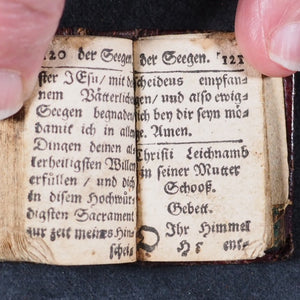 120 der Seegen.
ster JEsu / mit dei
nem Vätterlichen
Seegen begnade /
damit ich in allen
Dingen deinen al-
lerheiligsten Willen
erfüllen / und
in disem Hochwür-
digsten Sacrament
zur zeit meines Hin-
schei-
der Seegen. 121
scheidens empfan-
gen / und also ewig-
lich bey dir seyn mö-
ge. Amen.
Christi Leichnamb
in seiner Mutter
Schooß.
Gebett.
O Ihr Himmel
H 5 ens-